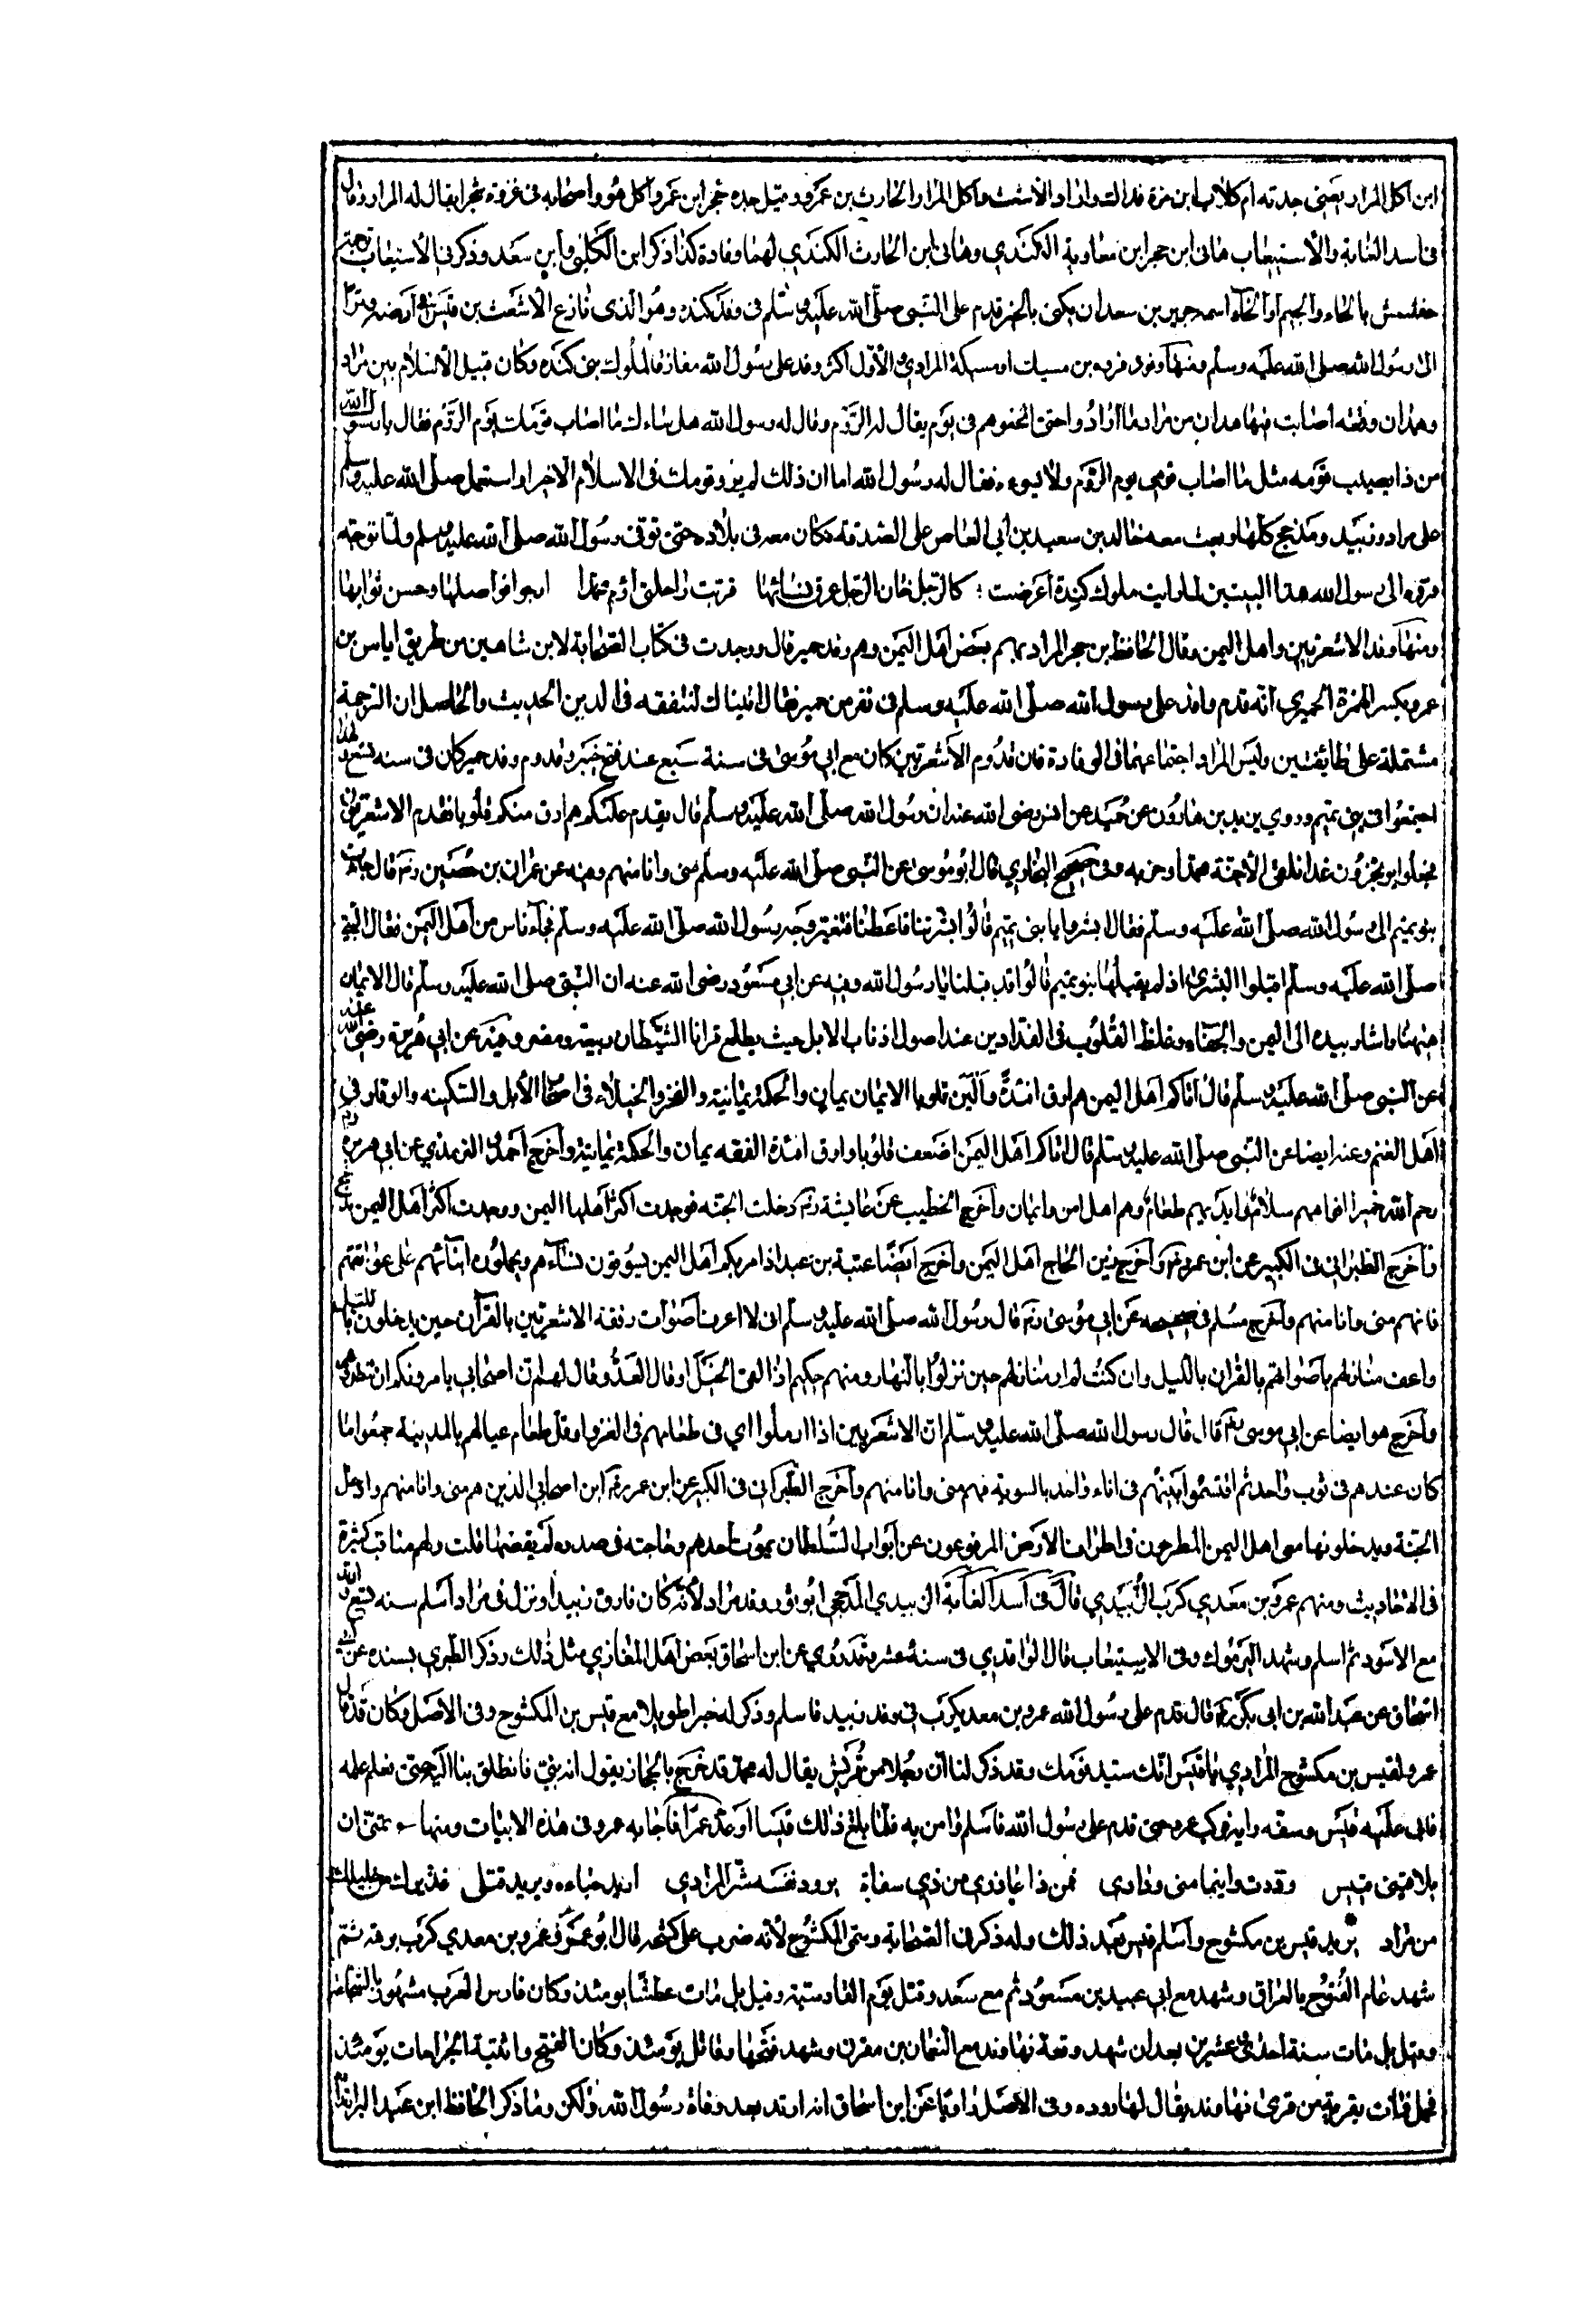 ابن آكل المرار يعني جدته ام كلاب ابن مرة فذلك اراد الاشعث وآكل المرار الحارث بن عمرو وقيل جده حجر ابن عمرو آكل هو واصحابه في غزوة شجرا يقال له المرار وقال
في اسد الغابة والاستيعاب هانى ابن حجر ابن معاوية الكندي وهانى ابن الحارث الكندي لهما وفادة كذا ذكر ابن الكلبى وابن سعد وذكر في الاستيعاب ترجمة
جفشيش بالحاء والجيم او الخاء اسمه جرير بن سعدان يكنى بالخير قدم على النبى صلى الله عليه وسلم في وفد كنده وهو الذى نازع الاشعث بن قيس في ارضه وترافعا
الى رسول الله صلى الله عليه وسلم ومنها وفود فروه بن مسيك او مسيكة المرادي والاول اكثر وفد على رسول الله مفارقا لملوك بنى كنده وكان قبيل الاسلام بين مراد
وهمدان وقعه اصابت فيها همدان من مراد ما ارادوا حتى اثخنوهم في يوم يقال له الرَّزْم وقال له رسول الله هل ساءك ما اصاب قومك يوم الرَّزْم فقال يا رسول الله
من ذا يصيب قومه مثل ما اصاب قومى يوم الرزم ولا يسوءه فقال له رسول الله اما ان ذلك لم يزد قومك في الاسلام الا خيرا واستعمل صلى الله عليه وسلم
على مراد وزبيد ومذحج كلها وبعث معه خالد بن سعيد بن ابي العاص على الصدقة فكان معه في بلاده حتى توفى رسول الله صلى الله عليه وسلم ولما توجه
فروه الى رسول الله هذا البيتين لما رايت ملوك كندة اعرضت ؛ كالرجل خان الرجل عرق نسائها قربت راحلتى اؤم محمدا ارجوا فواصلها وحسن ثوابها
ومنها وفد الاشعريين واهل اليمن وقال الحافظ بن حجر المراد بهم بعض اهل اليمن وهم وفد حمير قال ووجدت في كتاب الصحابة لابن شاهين من طريق اياس بن
عمرو بكسر الهمزة الحميري انه قدم وافد على رسول الله صلى الله عليه وسلم في نفر من حمير فقال اتيناك لنتفقه في الدين الحديث والحاصل ان الترجمة
مشتملة على طائفتين وليس المراد اجتماعهما في الوفادة فان قدوم الاشعريين كان مع ابي موسى في سنة سبع عند فتح خيبر وقدوم وفد حمير كان في سنه تسع ولهذا
اجتمعوا في بنى تميم وروي يزيد بن هارون عن حميد عن انس رضى الله عنه ان رسول الله صلى الله عليه وسلم قال يقدم عليكم هم ارق منكم قلوبا فقدم الاشعريون
فجعلوا يرتجزون غدا نلقى الاحبة محمدا وحزبه وفي صحيح البخاري قال ابو موسى عن النبى صلى الله عليه وسلم هم منى وانا منهم وفيه عن عمران بن حصين رض قال جاءت
بنو تميم الى رسول الله صلى الله عليه وسلم فقال ابشروا يا بنى تميم قالوا بشرتنا فاعطنا فتغير وجه رسول الله صلى الله عليه وسلم فجاء ناس من اهل اليمن فقال النبى
صلى الله عليه وسلم اقبلوا البشرى اذ لم يقبلها بنو تميم قالوا قد قبلنا يا رسول الله وفيه عن ابي مسعود رضى الله عنه ان النبى صلى الله عليه وسلم قال الايمان
هيهنا واشار بيده الى اليمن والجفاء وغلظ القلوب في الفدادين عند اصول اذناب الابل حيث يطلع قرانا الشيطان ربيعة ومضر وفيه عن ابي هريرة رضى الله عنه
عن النبى صلى الله عليه وسلم قال اتاكم اهل اليمن هم ارق افئدة والين قلوبا الايمان يمان والحكمة يمانية والفخر والخيلاء في اصحاب الابل والسكينه والوقار في
اهل الغنم وعنه ايضا عن النبى صلى الله عليه وسلم قال اتاكم اهل اليمن اضعف قلوبا وارق افئدة الفقه يمان والحكمة يمانية واخرج احمد والترمذي عن ابي هريرة رض
رحم الله حميرا افواههم سلام وايديهم طعام وهم اهل امن وايمان واخرج الخطيب عن عايشة رض دخلت الجنة فوجدت اكثر اهلها اليمن ووجدت اكثر اهل اليمن مذحج
واخرج الطبرانى في الكبير عن ابن عمرو رض واخرج زين الحاج اهل اليمن واخرج ايضا عتبة بن عبد اذا مر بكم اهل اليمن يسوقون نساءهم ويحملون ابناءهم على عواتقهم
فانهم منى وانا منهم واخرج مسلم في صحيحه عن ابي موسى رض قال رسول الله صلى الله عليه وسلم انى لا اعرف اصوات رفقه الاشعريين بالقرآن حين يدخلون بالليل
واعرف منازلهم باصواتهم بالقرآن بالليل وان كنت لم ار منازلهم حين نزلوا بالنهار ومنهم حكيم اذا لقى الخيل او قال العدو قال لهم ان اصحابي يامرونكم ان تنظروهم
واخرج هو ايضا عن ابي موسى رض قال قال رسول الله صلى الله عليه وسلم ان الاشعريين اذا ارملوا اي في طعامهم في الغزو او قل طعام عيالهم بالمدينة جمعوا ما
كان عندهم في ثوب واحد ثم اقتسموا بينهم في اناء واحد بالسوية فهم منى وانا منهم واخرج الطبرانى في الكبير عن ابن عمر رض اين اصحابي الذين هم منى وانا منهم وادخل
الجنة ويدخلونها معى اهل اليمن المطرحون في اطراف الارض المدفوعون عن ابواب السلطان يموت احدهم وحاجته في صدره لم يقضها قلت ولهم مناقب كثيرة
في الاحاديث ومنهم عمرو بن معدي كرب الزبيدي قال في اسد الغابة الزبيدي المذحجى ابو ثور وفد مراد لانه كان فارق زبيدا ونزل في مراد اسلم سنه تسع وارتد
مع الاسود ثم اسلم وشهد اليرموك وفي الاستيعاب قال الواقدي في سنة عشر وقد روي عن ابن اسحاق بعض اهل المغازي مثل ذلك وذكر الطبري بسنده عن
اسحاق عن عبد الله بن ابي بكر رض قال قدم على رسول الله عمرو بن معديكرب في وفد زبيد فاسلم وذكر له خبرا طويلا مع قيس بن المكشوح وفي الاصل وكان قد قال
عمرو لقيس بن مكشوح المرادي يا قيس انك سيد قومك وقد ذكر لنا ان رجلا من قريش يقال له محمد قد خرج بالحجاز يقول انه نبي فانطلق بنا اليه حتى نعلم علمه
فابى عليه قيس وسفه رايه فركب عمرو حتى قدم على رسول الله فاسلم وامن به فلما بلغ ذلك قيسا اوعد عمرا فاجابه عمرو في هذه الابيات ومنها تمنى ان
يلاقينى قييس وددت واينما منى ودادي فمن ذا عاذري من ذي سفاة يرود نفسه شر المرادي اريد حباءه ويريد قتلى عذيرك من خليلك
من مراد يريد قيس بن مكشوح واسلم قيس بعد ذلك وله ذكر في الصحابة وسمى المكشوح لانه ضرب على كشحه قال ابو عمرو في عمرو بن معدي كرب
شهد عام الفتوح بالعراق وشهد مع ابي عبيد بن مسعود ثم مع سعد وقتل يوم القادسيه وقيل بل مات عطشا يومئذ وكان فارس العرب مشهورا بالشجاعة
وقيل بل مات سنة احدى وعشرين بعد ان شهد وقعة نهاوند مع النعمان بن مقرن وشهد فتحها وقاتل يومئذ وكان الفتح واثبتته الجراحات يومئذ
فحمل فمات بقرية من قرى نهاوند يقال لها روده وفي الاصل راويا عن ابن اسحاق انه ارتد بعد وفاة رسول الله ولكن وما ذكر الحافظ ابن عبد البر